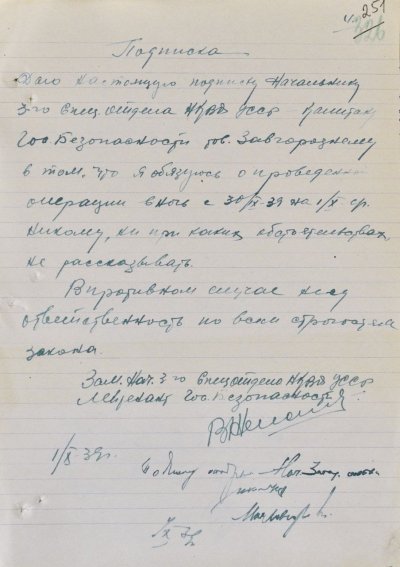 251
326
Подписка
Даю настоящую подписку Начальнику
3-го Спец.отдела НКВД УССР – Капитану
Гос Безопасности тов. Завгороднему
в том, что я обязуюсь о проведенной
операции в ночь с 30/IX-39 на 1/X с.г.
никому, ни при каких обстоятельствах,
не рассказывать.
В противном случае несу
ответственность по всей строгости
закона.
Зам. Нач. 3-го Спецотдела НКВД УССР
Лейтенант Гос Безопасности
1/X 39г.